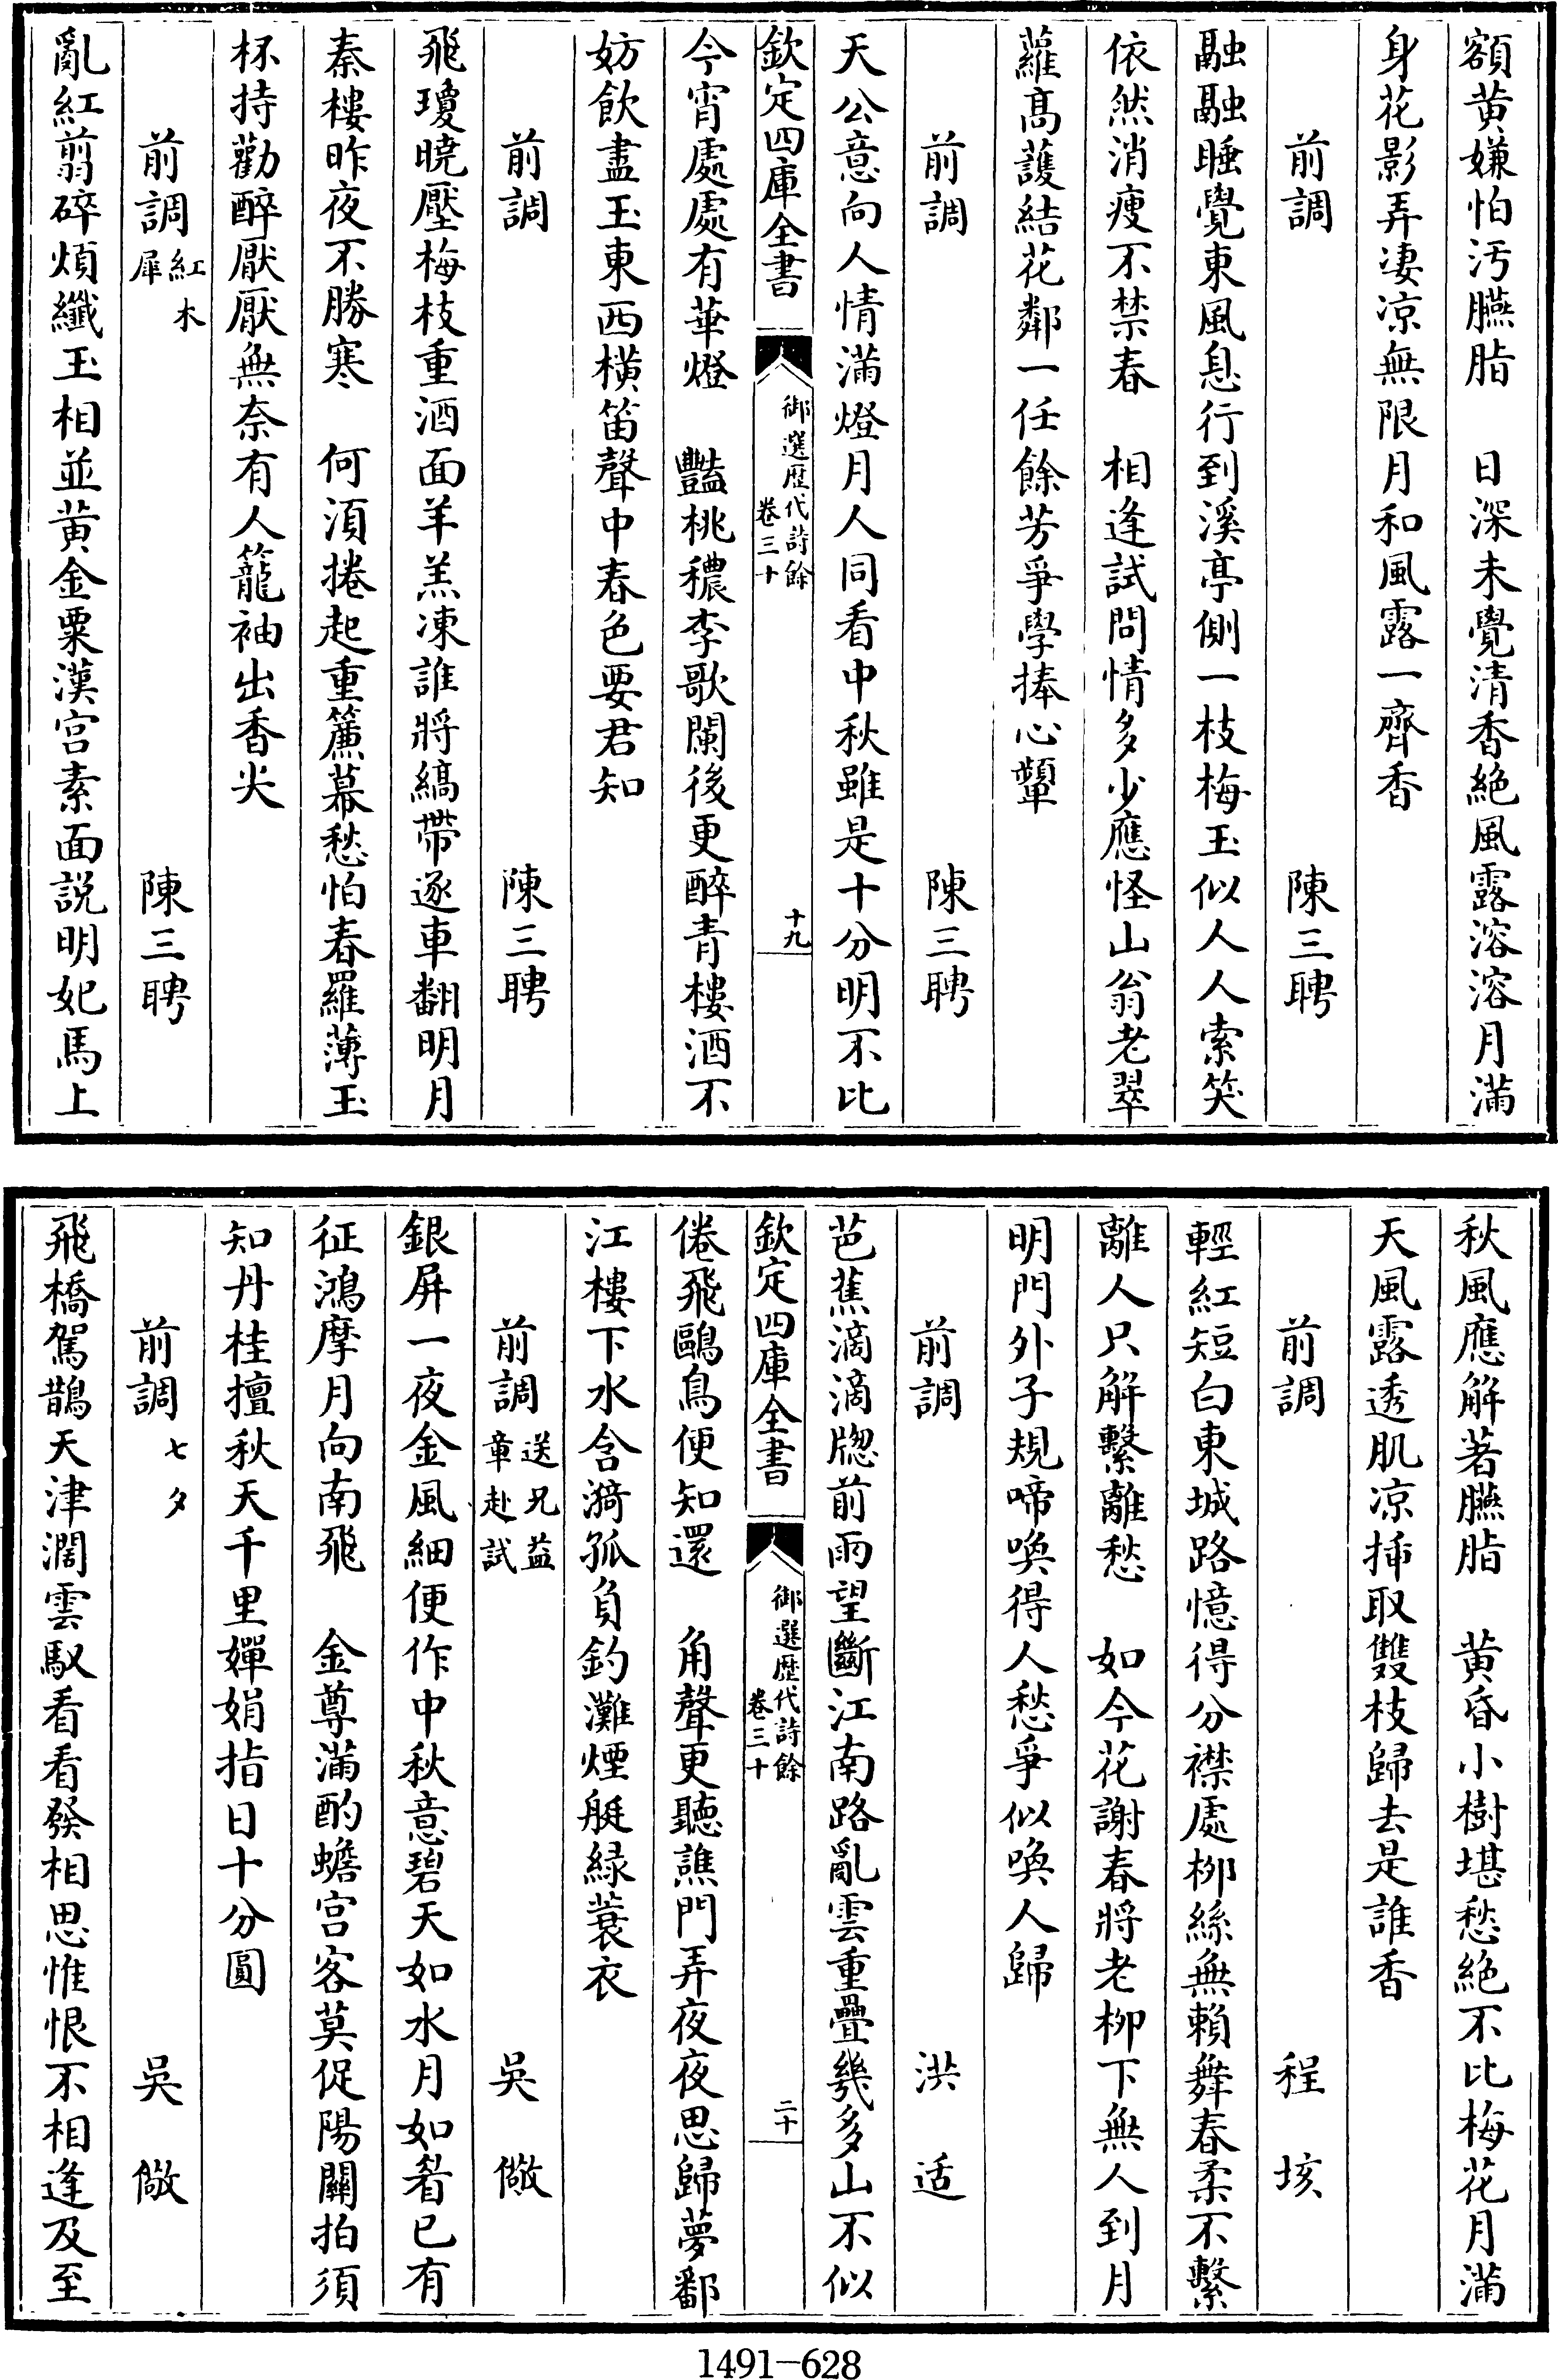 額黄嫌怕汚臙脂　日深未覺清香絶風露溶溶月滿
身花影弄凄凉無限月和風露一齊香
前調　陳三聘
融融睡覺東風息行到溪亭側一枝梅玉似人人索笑
依然消瘦不禁春　相逢試問情多少應怪山翁老翠
蘿髙護結花鄰一任餘芳爭學捧心顰
前調　陳三聘
天公意向人情滿燈月人同看中秋雖是十分明不比
欽定四庫全書　御選歴代詩餘　卷三十　十九
今宵處處有華燈　豔桃穠李歌闌後更醉青樓酒不
妨飲盡玉東西横笛聲中春色要君知
前調　陳三聘
飛瓊曉壓梅枝重酒面羊羔凍誰將縞帶逐車翻明月
秦樓昨夜不勝寒　何須捲起重簾幕愁怕春羅薄玉
杯持勸醉厭厭無奈有人籠袖出香尖
前調紅木犀　陳三聘
亂紅翦碎煩纖玉相並黄金粟漢宫素面説明妃馬上
秋風應解著臙脂　黄昏小樹堪愁絶不比梅花月滿
天風露透肌凉揷取雙枝歸去是誰香
前調　程垓
輕紅短白東城路憶得分襟處栁絲無賴舞春柔不繫
離人只解繫離愁　如今花謝春將老栁下無人到月
明門外子規啼喚得人愁爭似喚人歸
前調　洪适
芭蕉滴滴牕前雨望斷江南路亂雲重疊幾多山不似
欽定四庫全書　御選歴代詩餘　卷三十　二十
倦飛鷗鳥便知還　角聲更聽譙門弄夜夜思歸夢鄱
江樓下水含漪孤負釣灘煙艇緑蓑衣
前調送兄益章赴試　吳儆
銀屏一夜金風細便作中秋意碧天如水月如眢已有
征鴻摩月向南飛　金尊滿酌蟾宫客莫促陽關拍須
知丹桂擅秋天千里嬋娟指日十分圓
前調七夕　吳儆
飛橋駕鵲天津濶雲馭看看發相思惟恨不相逢及至
1491—628